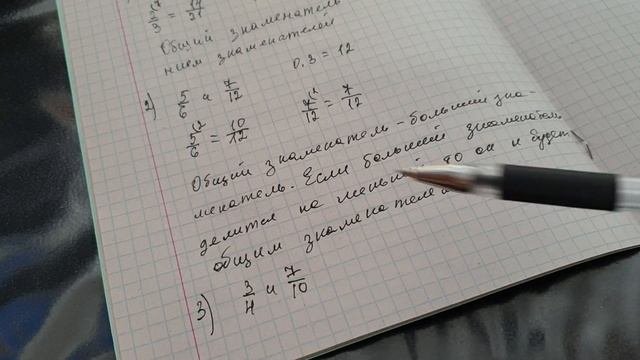 5/3 = 17/21
Общий знаменатель
нием знаменателей
2) 5/6 и 7/12 О.З = 12
5/6 = 10/12 7/12 = 7/12
Общий знаменатель - больший зна-
менатель. Если больший знаменатель
делится на меньший то он и будет
общим знаменателем
3) 3/4 и 7/10